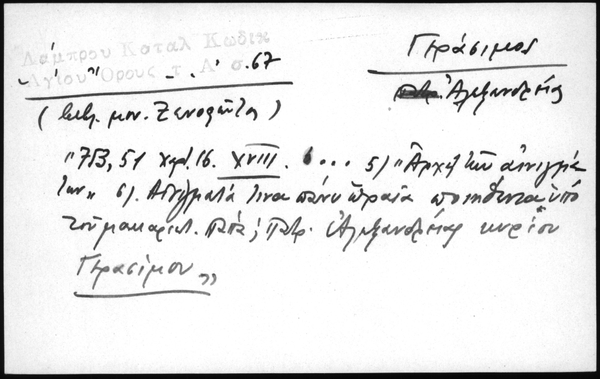 Λάμπρου Καταλ Κωδικ
Ἁγίου Ὄρους τ. Α' σ. 67
Γεράσιμος
Πατρ. Ἀλεξανδρείας
(Βιβλ. μον. Ξενοφῶντος)
"753, 51 χαρτ. 16. XVIII. 6... 5) "Ἀρχὴ τῶν αἰνιγμά
των" 6). Αἰνίγματά τινα πάνυ ὡραῖα ποιηθέντα ὑπὸ
τοῦ μακαριωτ. Πάπα, Πατρ. Ἀλεξανδρείας κυρίου
Γερασίμου"